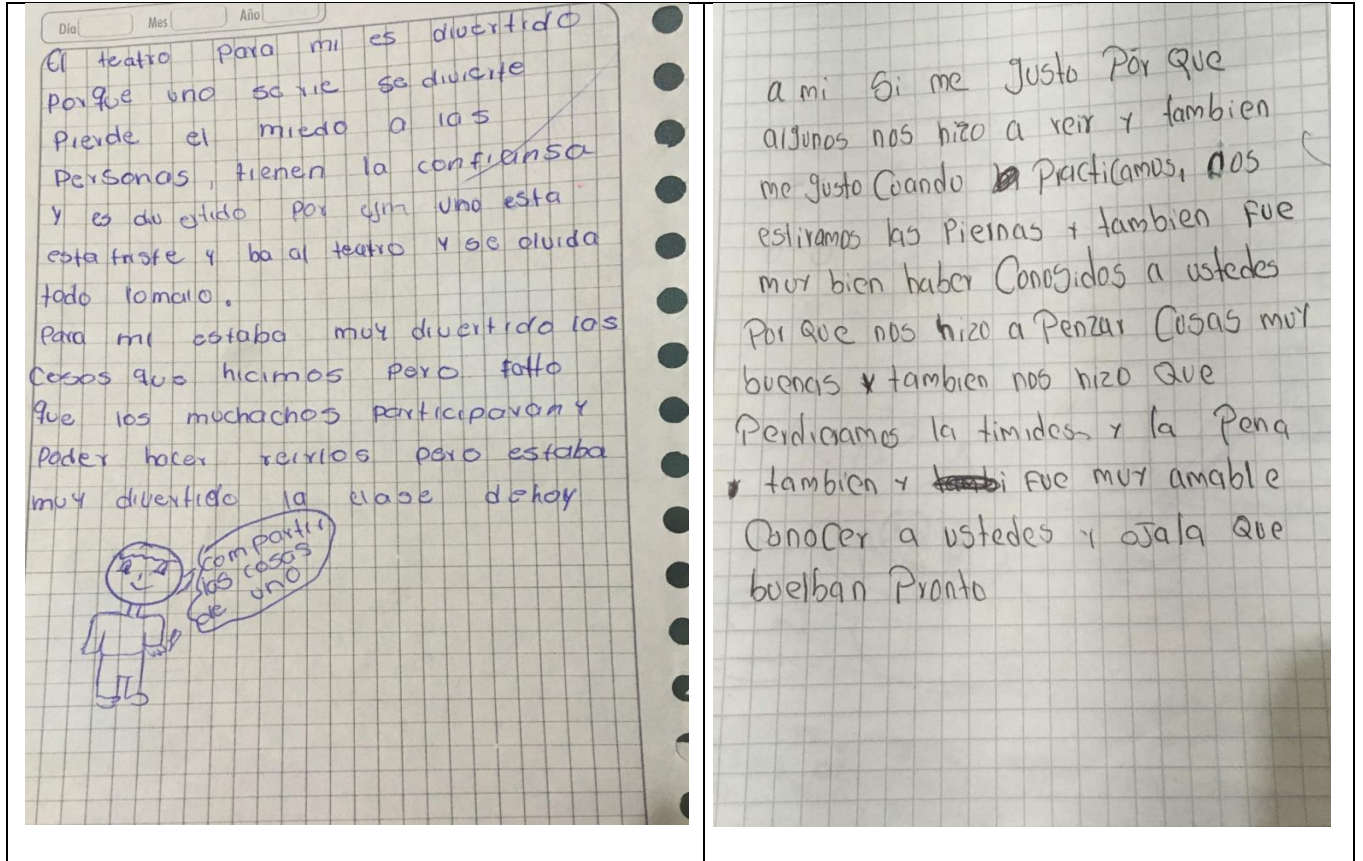 Día Mes Año
El teatro para mi es divertido
porque uno se rie se divierte
Pierde el miedo a las
Personas, tienen la confiansa
y es divertido por ejm uno esta
esta triste y ba al teatro y se olvida
todo lo malo.
Para mi estaba muy divertido las
cosas que hicimos pero falto
que los muchachos participaran y
poder hacer reirlos pero estaba
muy divertido la clase de hoy
compartir
las cosas
de uno
a mi Si me gusto Por Que
algunos nos hizo a reir y tambien
me gusto Cuando Practicamos, nos
estiramos las Piernas y tambien Fue
muy bien haber Conosidos a ustedes
Por Que nos hizo a Penzar Cosas muy
buenas y tambien nos hizo Que
Perdigamos la timides y la Pena
tambien y Fue muy amable
Conocer a ustedes y ojala Que
buelban Pronto